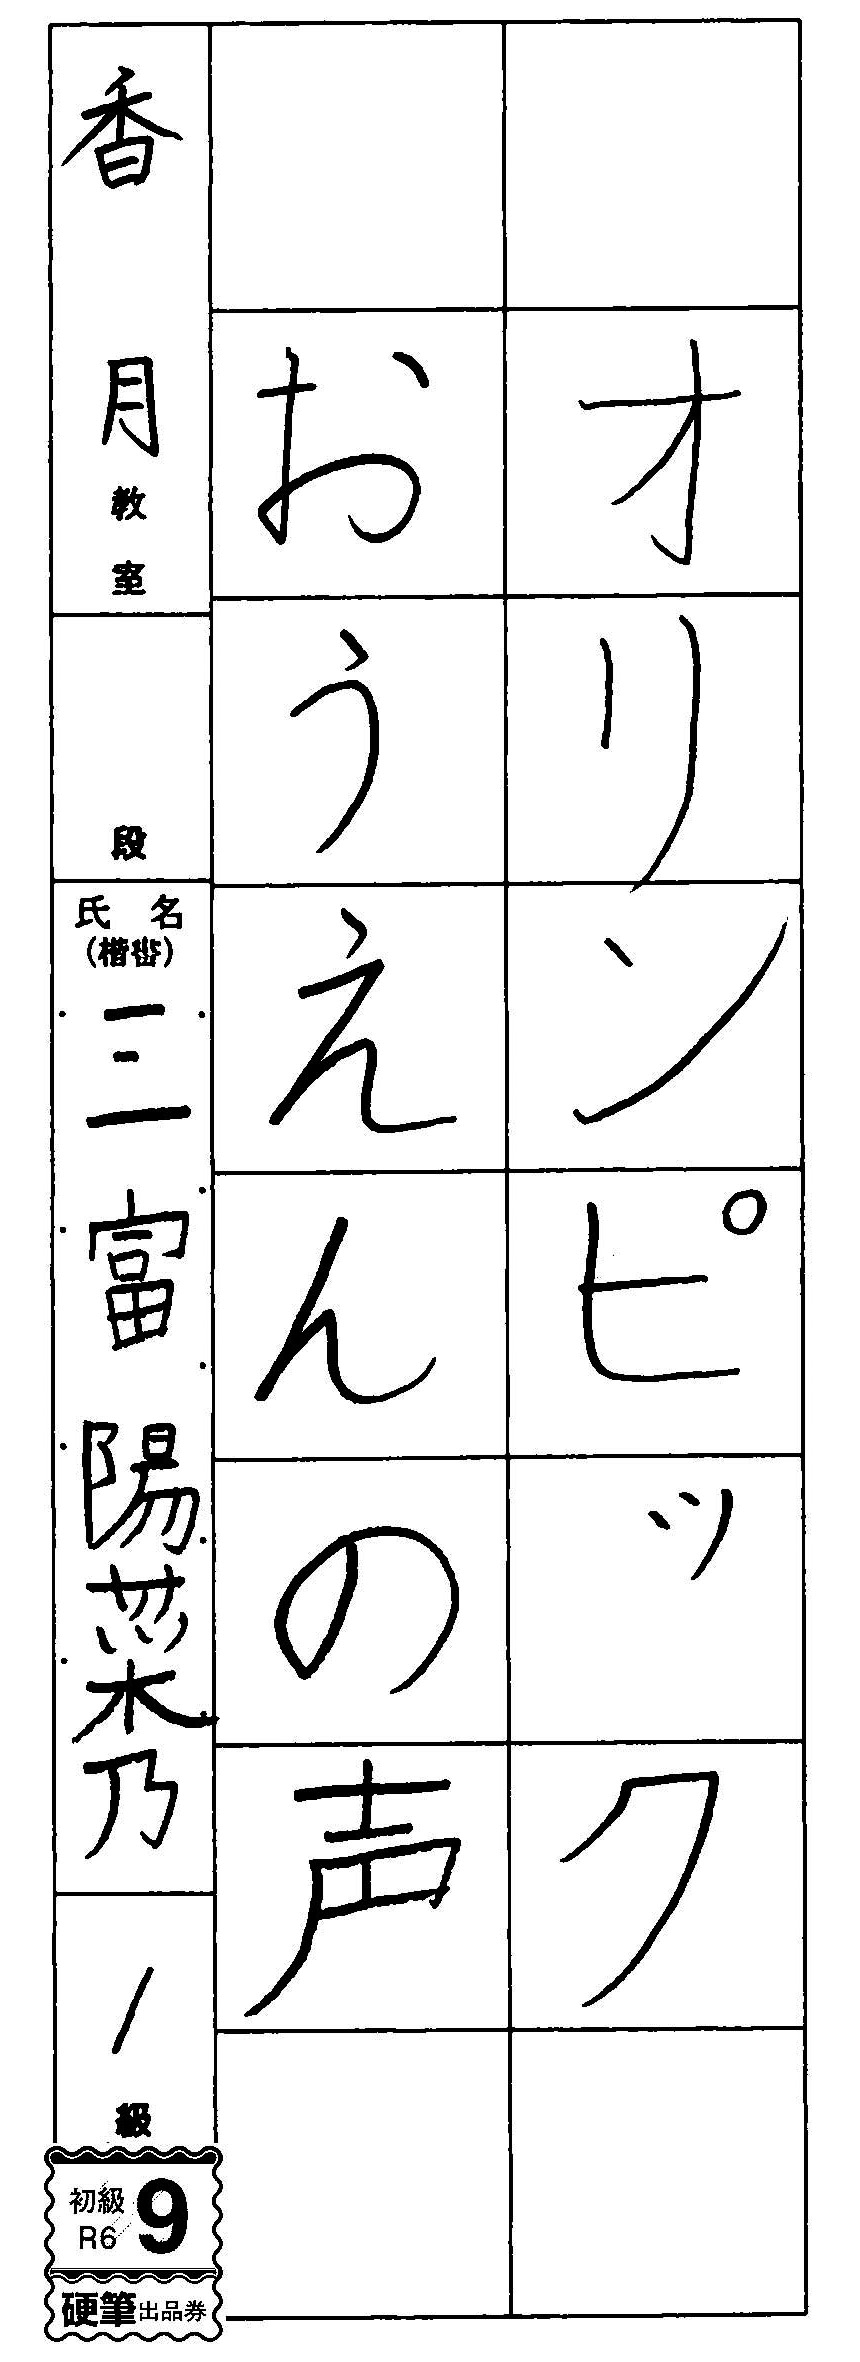 オリンピック
おうえんの声
香月教室
段
氏名
(楷書)
三富陽菜乃
1級
初級
R6
9
硬筆出品券